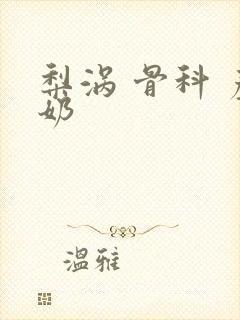 梨涡 骨科
奶
温雅